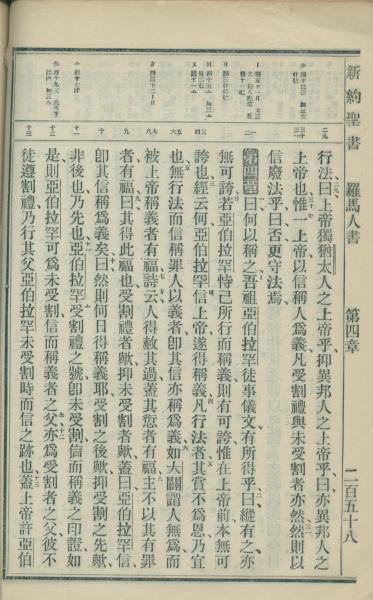 新約聖書 羅馬人書 第四章 二百五十八
行法曰上帝獨猶太人之上帝乎抑異邦人之上帝乎曰亦異邦人之
上帝也惟一上帝以信稱人爲義凡受割禮與未受割者亦然然則以
信廢法乎曰否更守法焉
第四章曰何以稱之吾祖亞伯拉罕徒事儀文有所得乎曰縱有之亦
無可誇若亞伯拉罕恃己所行而稱義則有可誇惟在上帝前本無可
誇也經云何亞伯拉罕信上帝遂得稱義凡行法者其賞不爲恩乃宜
也無行法而信稱罪人以義者卽其信亦稱爲義如大闢謂人無爲而
被上帝稱義者有福詩云人得赦其過蓋其愆者有福主不以其有罪
者有福曰其得此福也受割禮者歟抑未受割者歟蓋曰亞伯拉罕信
卽其信稱爲義矣曰然則何日得稱義耶受割之後歟抑受割之先歟
非後也乃先也亞伯拉罕受割禮之號卽未受割信而稱義之印證如
是則亞伯拉罕可爲未受割信而稱義者之父亦爲受割者之父彼不
徒遵割禮乃行其父亞伯拉罕未受割時而信之跡也蓋上帝許亞伯